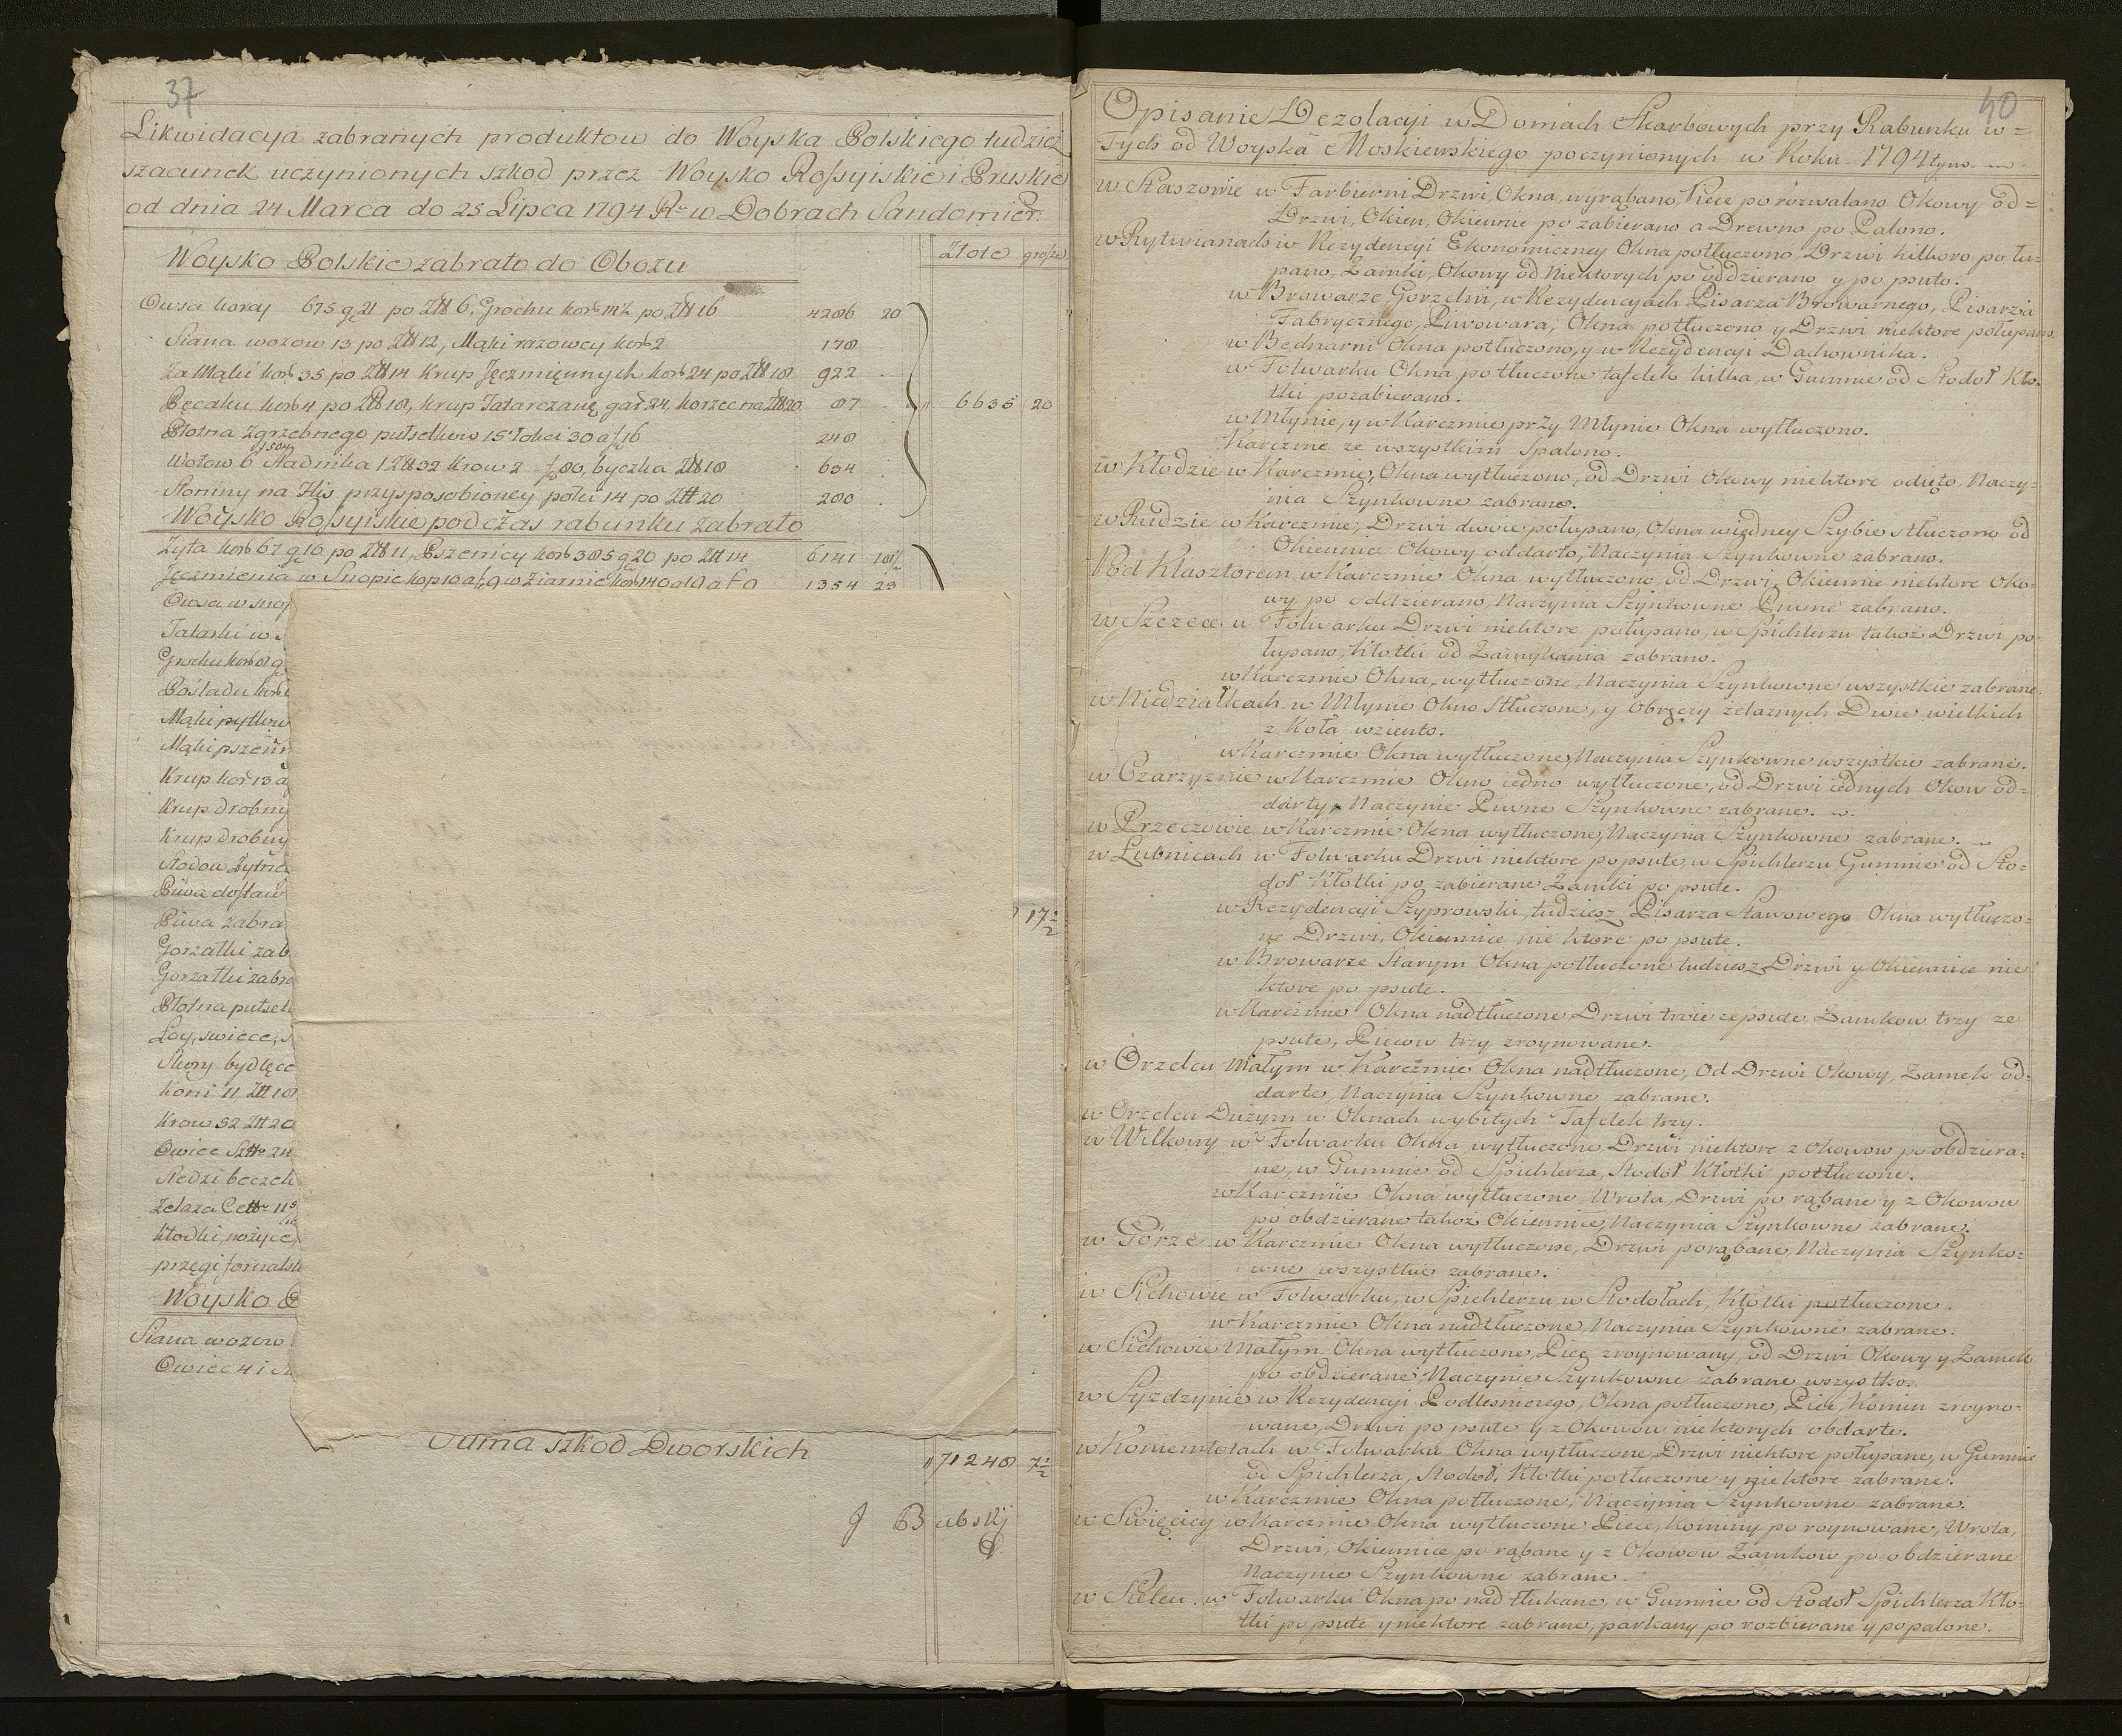 37
Likwidacyja zabranych produktow do Woyska Polskiego tudziez
szacunek uczynionych szkod przez Woysko Rossyiskie i Pruskie
od dnia 24 Marca do 25 Lipca 1794 R. w Dobrach Sandomier:
Złote grosze
Woysko Polskie zabrało do Obozu
Owsa korcy 675 g 21 po Złł 6, Grochu kor 14½ po Złł 16 4286 20
Siana wozow 13 po Złł 12, Mąki razowey kor 2 178
Za Mąki kor 35 po Złł 14 Krup Jęczmięnnych kor 24 po Złł 18 922
Pęcaku kor 4 po Złł 18, krup Tatarczanę gar 24, korzec na Złł 20 87 6635 20
Płotna Zgrzebnego pułsetkow 15 łokci 30 a f 16 248
Wołow 6 Stadnika 1 Złł 32 Krow 2 f 80, byczka Złł 18 634
Słoniny na His przysposobioney połci 14 po Złł 20 280
Woysko Rossyiskie podczas rabunku zabrało
Zyta kor 67 g 10 po Złł 11, Pszenicy kor 385 g 20 po Złł 14 6141 18½
Jęczmienia w Snopie kop 10 a f 9 w Ziarnie kor 140 a f 9 1354 23
Owsa w snop
Tatarki w
Grochu kor 8 g
Pośladu kor
Mąki pytlow
Mąki pszenn
Krup kor 13 a
Krup drobny
Krup drobny
Słodow Zytnie
Piwa dostaw
Piwa zabra 17½
Gorzałki zab
Gorzałki zabra
Płotna pułsetk
Loy, swiece, s
Skory bydlęce
Koni 11 Złł 18
Krow 52 Złł 20
Owiec Szt 24
Sledzi beczek
Zelaza Cett 115
Kłodki, nożyce,
przęgi fornalsk
Woysko P
Siana wozow
Owiec 41 i
Suma szkod Dworskich 71248 7½
J Bubskj
40
Opisanie Dezolacyi w Domach Skarbowych przy Rabunku w=
Tych od Woyska Moskiewskiego poczynionych w Roku 1794tym.
w Staszowie w Farbierni Drzwi, Okna, wyrąbano, Piece porozwalano Okowy od=
Drzwi, Okien, Okiennic po zabierano a Drewno po Palono.
w Rytwianach w Rezydencyi Ekonomiczney Okna potłuczono, Drzwi kilkoro połu=
pano, Zamki, Okowy od Niektorych poóddzierano y popsuto.
w Browarze, Gorzelni, w Rezydencyiach Pisarza Browarnego, Pisarza
Fabrycznego, Piwowara, Okna potłuczono y Drzwi niektore połupano.
w Bednarni Okna potłuczono, y w Rezydencyi Dachownika.
w Folwarku Okna potłuczone tafelek kilka, w Gumnie od Stodoł Kło=
tki pozabierano.
w Młynie, y w Karczmie przy Młynie Okna wytłuczono.
Karczme ze wszystkiim Spalono.
w Kłodzie w Karczmie, Okna wytłuczono, od Drzwi Okowy niektore odięto, Naczy=
nia Szynkowne zabrano.
w Rudzie w Karczmie, Drzwi dwoie połupano, Okna wiedney Szybie stłuczono od
Okiennic Okowy oddarto, Naczynia Szynkowne zabrano.
Pod Klasztorem w Karczmie Okna wytłuczono, od Drzwi, Okiennic niektore Oko=
wy po oddzierano, Naczynia Szynkowne Piwne zabrano.
w Szczece w Folwarku Drzwi niektore połupano, w Spichlerzu takoż Drzwi po=
łupano, Kłotki od Zamykania zabrano.
w Karczmie Okna, wytłuczone, Naczynia Szynkowne wszystkie zabrane.
w Niedziałkach w Młynie Okno Stłuczone, y Obręczy żelaznych Dwie wielkich
z Koła wziento.
w Karczmie Okna wytłuczone, Naczynia Szynkowne wszystkie zabrane.
w Czarzyznie w Karczmie Okno iedno wytłuczone, od Drzwi iednych Okow od=
darty, Naczynie Piwne Szynkowne zabrane.
w Przeczowie w Karczmie Okna wytłuczone, Naczynia Szynkowne zabrane.
w Łubnicach w Folwarku Drzwi niektore popsute, w Spichlerzu Gumnie od Sto=
doł Kłotki po zabierane Zamki popsute.
w Rezydencyi Szyprowski, tudziesz Pisarza Stawowego Okna wytłuczo=
ne Drzwi, Okiennice nie ktore popsute.
w Browarze Starym Okna potłuczone tudziesz Drzwi y Okiennice nie
ktore popsute.
w Karczmie Okna nadtłuczone, Drzwi troie zepsute, Zamkow trzy ze
psute, Piecow trzy zroynowane.
w Orzelcu Małym w Karczmie Okna nadtłuczone, Od Drzwi Okowy, Zamek od=
darte, Naczynia Szynkowne zabrane.
w Orzelcu Dużym w Oknach wybitych Tafelek trzy.
w Wilkowy w Folwarku Okna wytłuczone, Drzwi niektore z Okowow po obdziera=
ne, w Gumnie od Spichlerza, Stodoł Kłotki potłuczone.
w Karczmie Okna wytłuczone, Wrota, Drzwi porąbane y z Okowow
po obdzierane takoż Okiennice, Naczynia Szynkowne zabrane.
w Górze w Karczmie Okna wytłuczone, Drzwi porąbane, Naczynia Szynko=
wne wszystkie zabrane.
w Sichowie w Folwarku, w Spichlerzu, w Stodołach, Kłotki potłuczone.
w Karczmie Okna nadtłuczone, Naczynia Szynkowne zabrane.
w Sichowie Małym Okna wytłuczone, Piec zroynowany, od Drzwi Okowy y Zamek
po obdzierane, Naczynie Szynkowne zabrane wszystko.
w Syzdzynie w Rezydencyi Podlesniczego, Okna potłuczone, Piec, Komin zroyno=
wane, Drzwi popsute y z Okowow niektorych obdarte.
w Koniemłotach w Folwarku Okna wytłuczone, Drzwi niektore połupane, w Gumnie
od Spichlerza, Stodoł, Kłotki potłuczone y niektore zabrane.
w Karczmie Okna potłuczone, Naczynia Szynkowne zabrane.
w Swięcicy w Karczmie Okna wytłuczone Piece, Kominy poroynowane, Wrota,
Drzwi, Okiennice porąbane y z Okowow Zamkow po obdzierane
Naczynie Szynkowne zabrane.
w Sielcu w Folwarku Okna po nadtłukane, w Gumnie od Stodoł Spichlerza Kło=
tki popsute y niektore zabrane, parkany porozbierane y popalone.